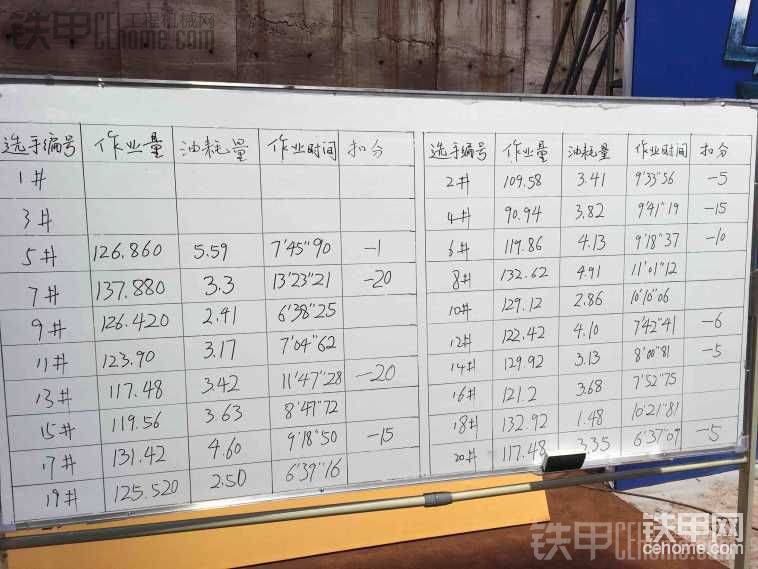 铁甲 工程机械网
CEhome.com
选手编号 作业量 油耗量 作业时间 扣分
1#
3#
5# 126.860 5.59 7'45"90 -1
7# 137.880 3.3 13'23"21 -20
9# 126.420 2.41 6'38"25
11# 123.90 3.17 7'04"62
13# 117.48 3.42 11'47"28 -20
15# 119.56 3.63 8'47"72
17# 131.42 4.60 9'18"50 -15
19# 125.520 2.50 6'39"16
选手编号 作业量 油耗量 作业时间 扣分
2# 109.58 3.41 9'33"56 -5
4# 90.94 3.82 9'41"19 -15
6# 119.86 4.13 9'18"37 -10
8# 132.62 4.91 11'01"12
10# 129.12 2.86 10'16"06
12# 122.42 4.10 7'42"41 -6
14# 129.92 3.13 8'00"81 -5
16# 121.2 3.68 7'52"75
18# 132.92 1.48 10'21"81
20# 117.48 3.35 6'37"07 -5
铁甲网
cehome.com